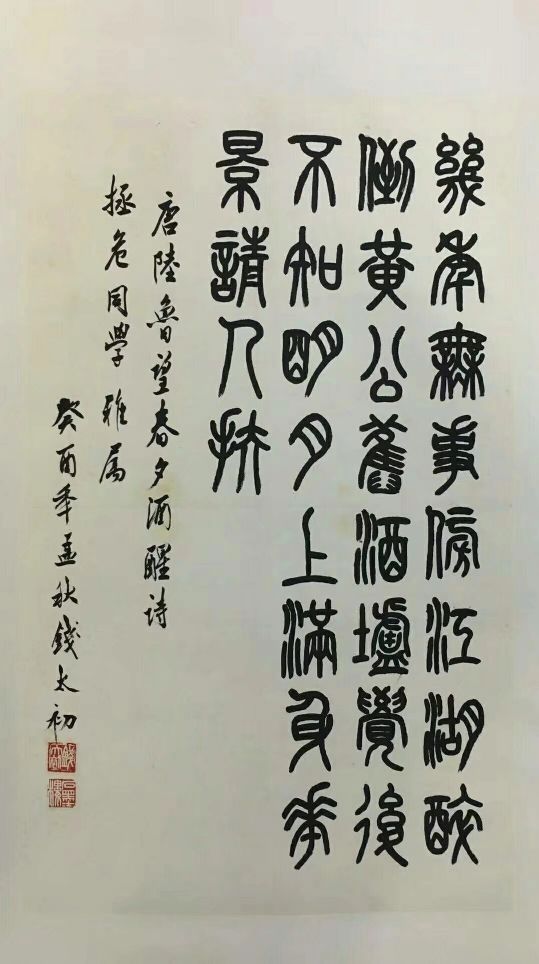 幾年無事傍江湖醉
倒黃公舊酒壚覺後
不知明月上滿身華
景請人扶
唐陸魯望春夕酒醒詩
拯危同學雅屬
癸酉年孟秋錢太初